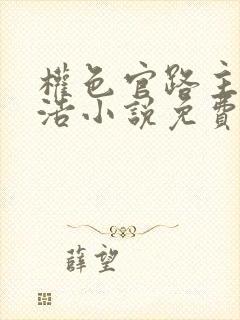 權色官路主
浩小說免費
薛望